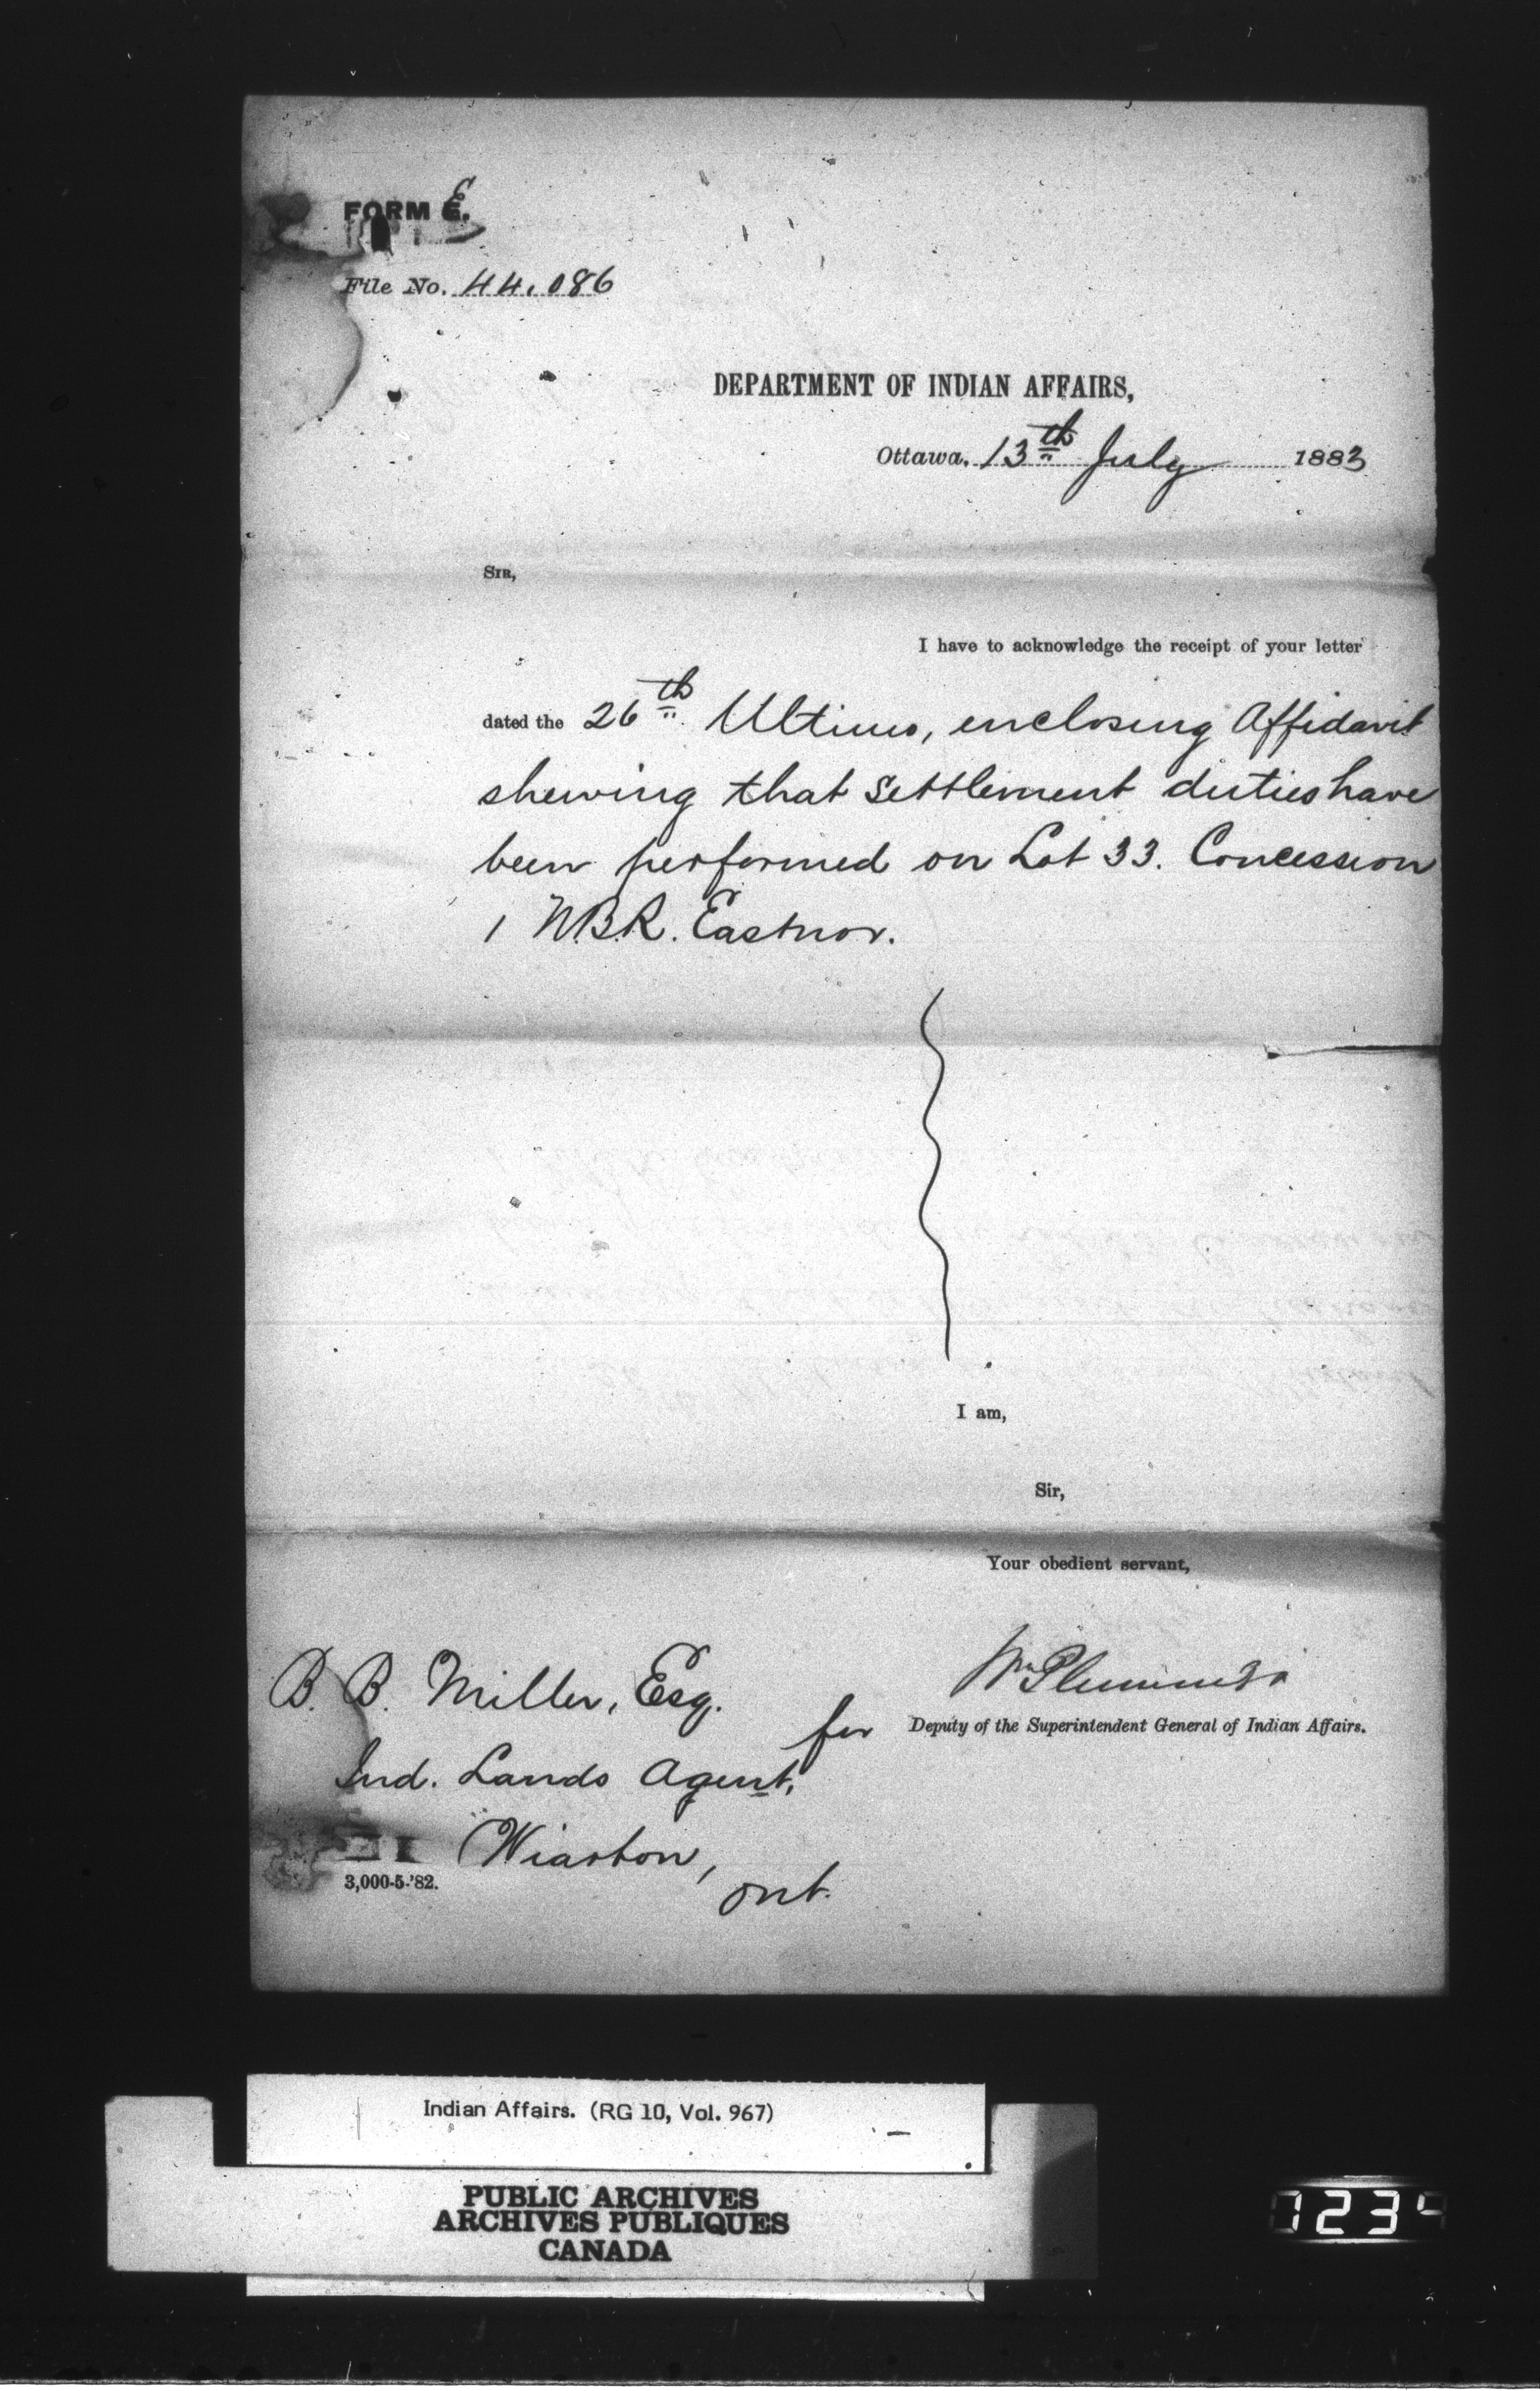 FORM E.
File No. 44,086
DEPARTMENT OF INDIAN AFFAIRS,
Ottawa, 13th July 1883
SIR,
I have to acknowledge the receipt of your letter
dated the 26th Ultimo, enclosing Affidavit
shewing that Settlement duties have
been performed on Lot 33. Concession
1 W.B.R. Eastnor.
I am,
Sir,
Your obedient servant,
Wm Plummer
for Deputy of the Superintendent General of Indian Affairs.
B. B. Miller, Esq.
Ind. Lands Agent,
Wiarton,
Ont.
3,000-5-'82.
Indian Affairs. (RG 10, Vol. 967)
PUBLIC ARCHIVES
ARCHIVES PUBLIQUES
CANADA
1234